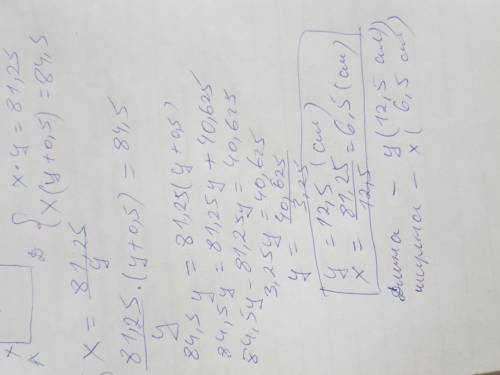 x
{ x·y = 81,25
x(y+0,5) = 84,5
x = 81,25/y
81,25/y · (y+0,5) = 84,5
84,5 y = 81,25(y+0,5)
84,5y = 81,25y + 40,625
84,5y - 81,25y = 40,625
3,25y = 40,625
y = 40,625/3,25
y = 12,5 (см)
x = 81,25/12,5 = 6,5 (см)
Длина - y (12,5 см)
ширина - x ( 6,5 см)